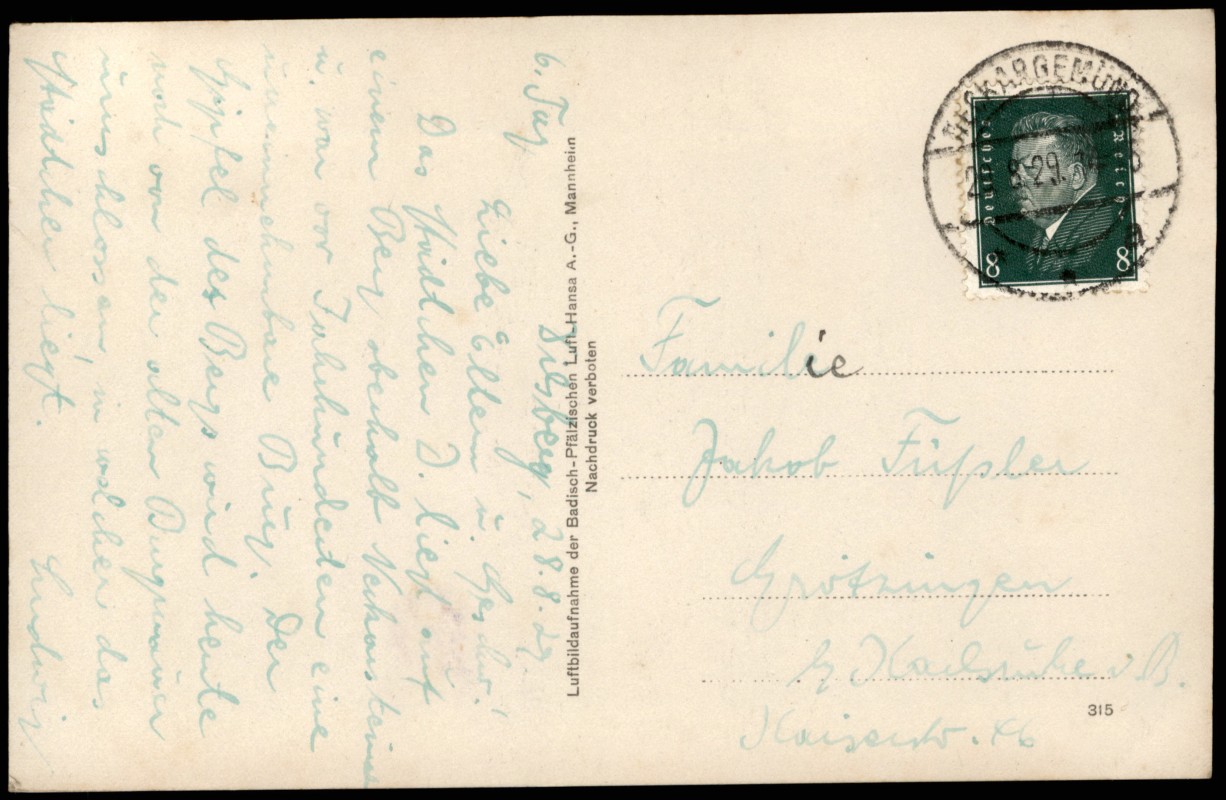 6. Tag
Dilsberg, 28.8.29.
Liebe Eltern u. Geschw.!
Das Städtchen D. liegt auf
einem Berg oberhalb Neckarsteinach
u. war vor Jahrhunderten eine
uneinnehmbare Burg. Der
Gipfel des Bergs wird heute
noch von der alten Burgmauer
umschlossen, in welcher das
Städtchen liegt.
Ludwig.
Luftbildaufnahme der Badisch-Pfälzischen Luft-Hansa A.-G., Mannheim
Nachdruck verboten
NECKARGEMÜND
8.29.
Deutsches Reich
8 8
Familie
Jakob Füßler
Grötzingen
b/ Karlsruhe i. B.
Kaiserstr. 46
315